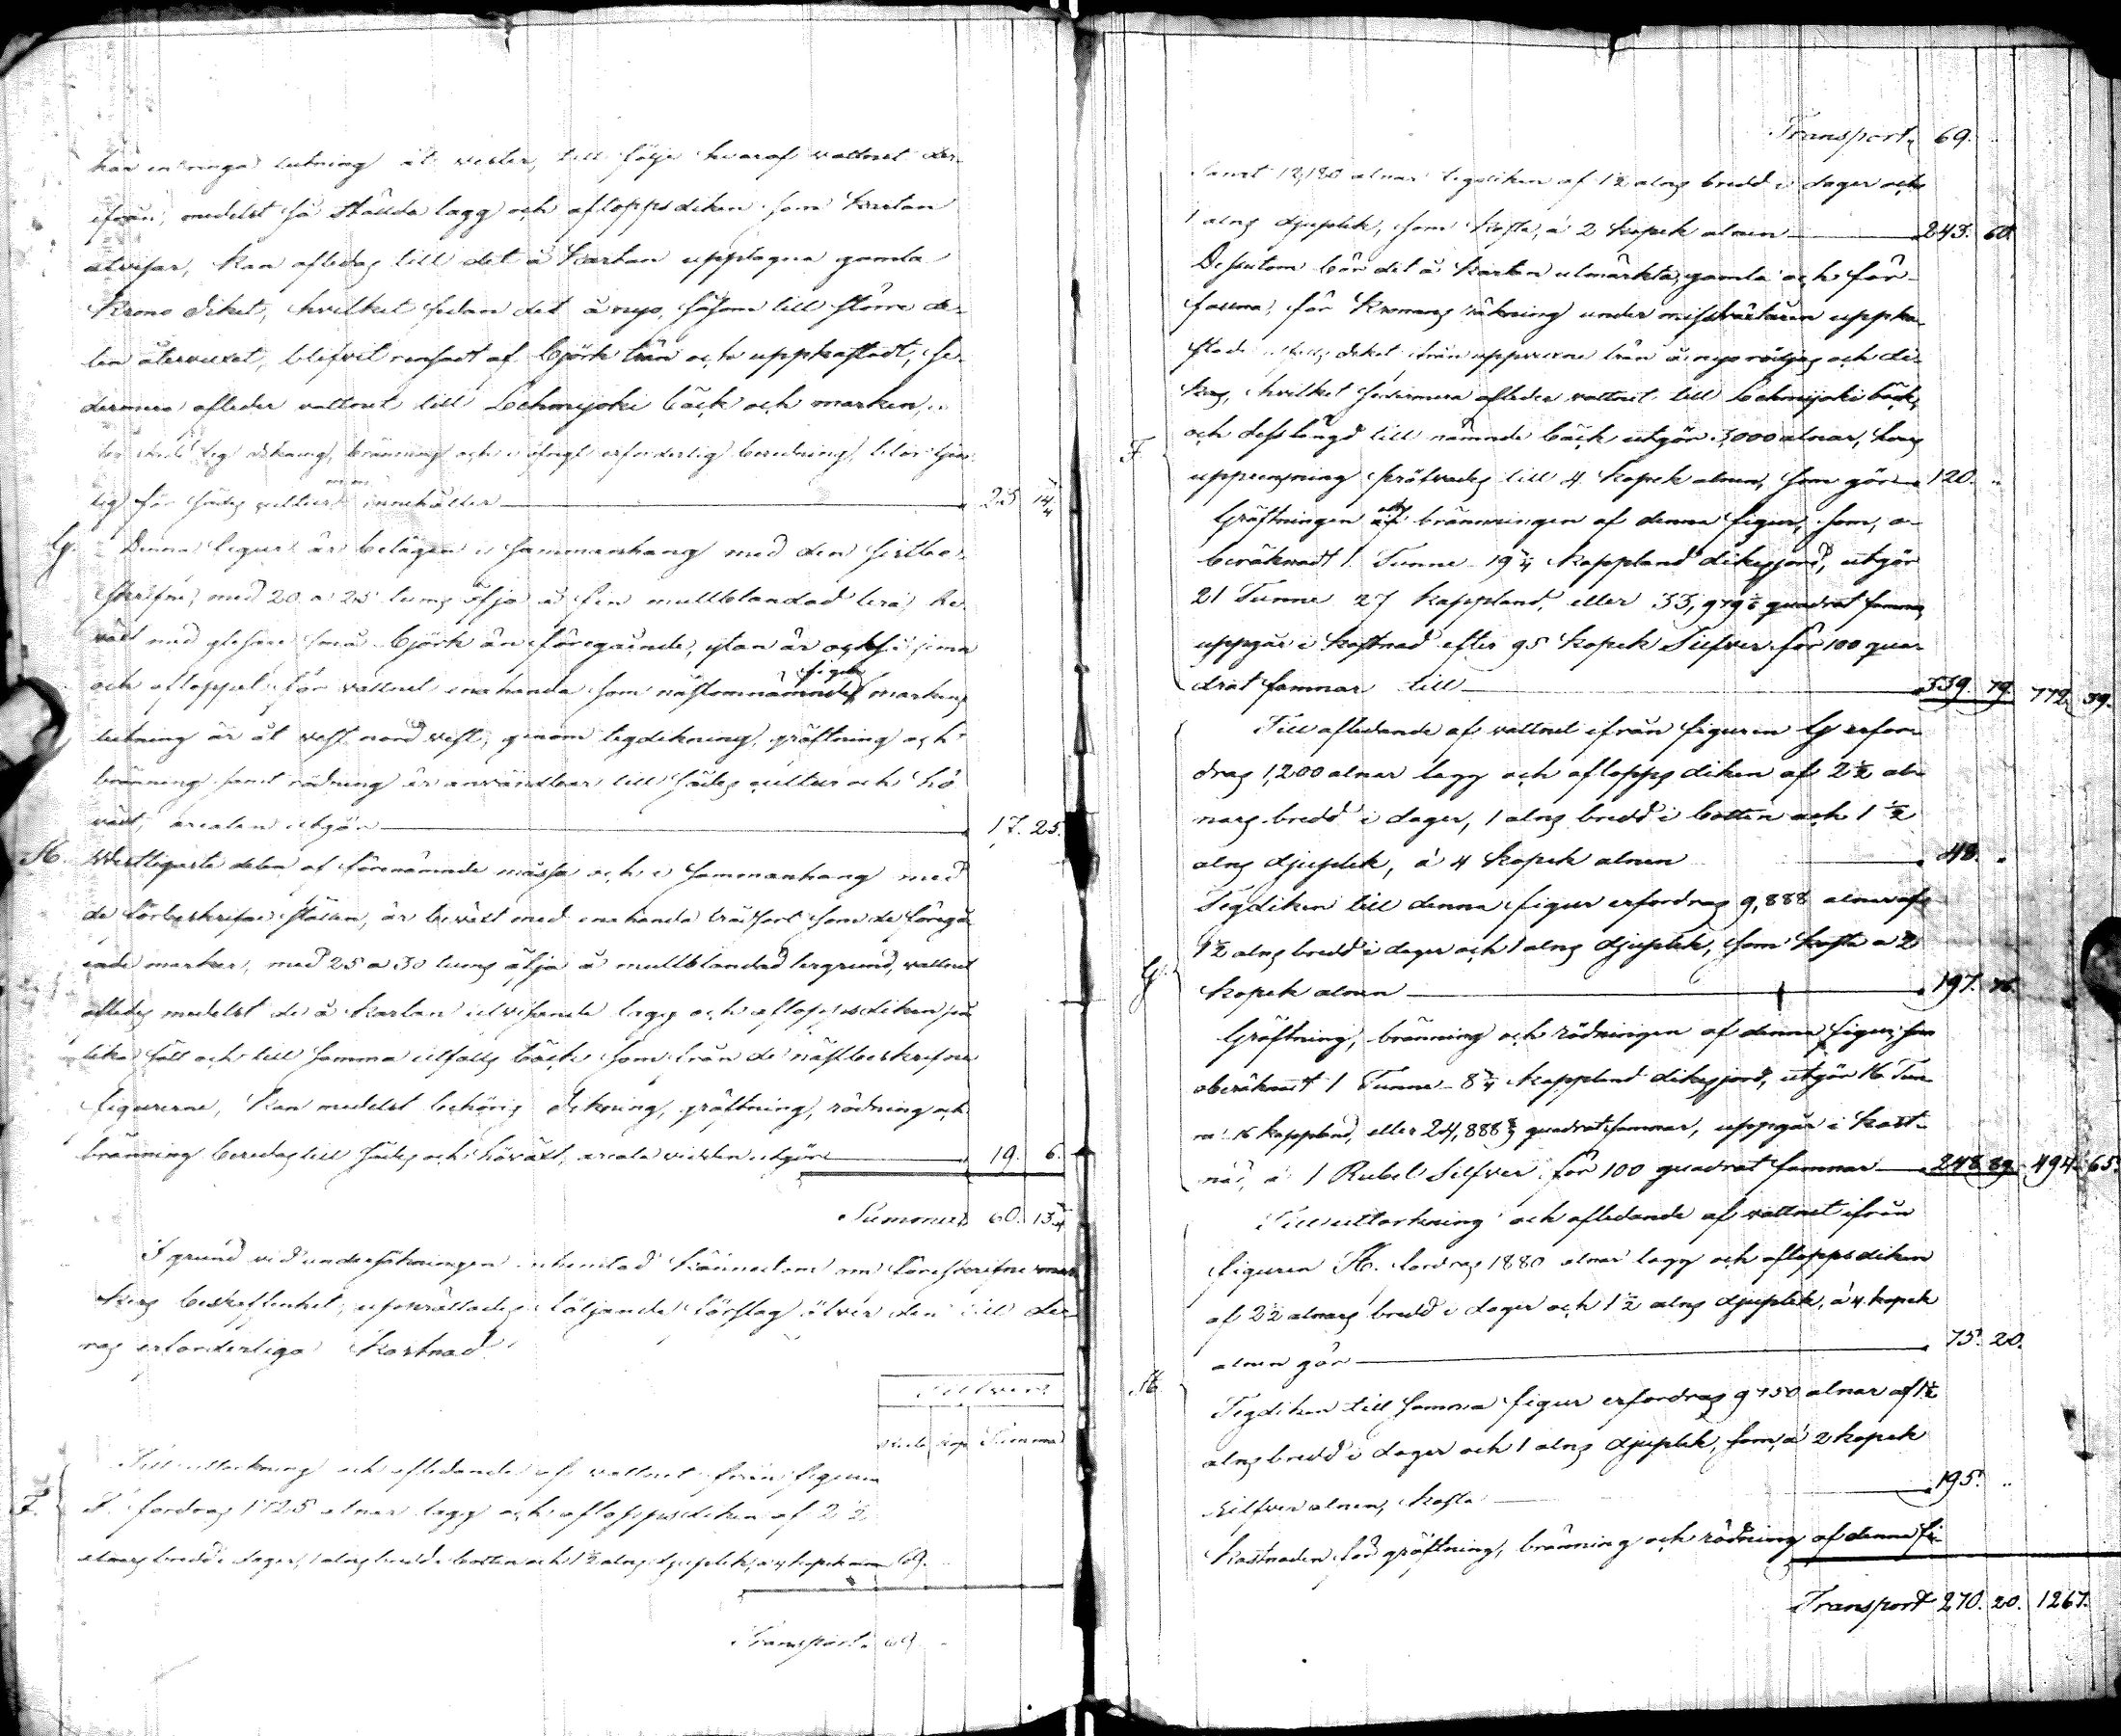 har en ringa lutning åt vester, till följe hvaraf vattnet der-
ifrån, medelst så ställde lagg och afloppsdiken som kartan
utvisar, kan afledas till det å kartan upptagna gamla
Krono diket, hvilket sedan det å nyo, såsom till större de-
len återvuxet, blifvit rensadt af björk trän och uppkastadt, se-
dermera afleder vattnet till Lehmijoki bäck och marken,
dikning, bränning och öfrigt erforderlig beredning, blir tjen-
lig för sädes cultur innehåller 25 14¾
G. Denna figur är belägen i sammanhang med den sistbe-
skrifne, med 20 a 25 tums äfja å fin mullblandad lera, be-
växt med glesare små björk än föregående, ytan är också jemn
och afloppet för vattnet enahanda som nästomnämnde figur, markens
lutning är åt vest nord vest, genom tegdikning, gräftning och
bränning samt rödning är användbar till sädes cultur och hö-
växt, arealen utgör 17. 25.
H. Westligaste delen af förenämnde måssa och i sammanhang med
de förbeskrifne ställen, är beväxt med enahanda trädsort som de föregå-
ende marker, med 25 a 30 tums äfja å mullblandad lergrund, vattnet
afledes medelst de å kartan utvisande lagg och afloppsdiken på
lika sätt och till samma utfalls bäck som från de näst beskrifne
figurerne, kan medelst behörig dikning, gräftning, rödning och
bränning beredas till sädes och höväxt, areala vidden utgör 19. 6.
Summa 60. 13¾
I grund vid undersökningen inhemtad kännedom om föreskrifne mar-
kers beskaffenhet, upprättades följande förslag öfver den till de-
ras erforderliga kostnad.
Silfver
Rub. Kop. Summa
Till uttorkning och afledande af vattnet från figuren
F. F. fordras 1725 alnar lagg och afloppsdiken af 2½
alnars bredd i dager, 1 alns bredd i botten och 1½ alns djuplek, a 4 kopek alnen 69.
Transport 69.
Transport 69.
samt 12,180 alnar tegdiken af 1½ alns bredd i dager och
1 alns djuplek, som kosta, á 2 kopek alnen 243. 60.
Dessutom bör det å kartan utmärkta, gamla och för-
fallna, för Kronans räkning under missväxtåren uppka-
stade diket från uppvuxne trän å nyo rödjas och di-
kas, hvilket sedermera afleder vattnet till Lehmijoki bäck,
F. och dess längd till nämnde bäck utgör 3,000 alnar, hvars
upprensning skattades till 4 kopek alnen, som gör 120.
Gräftningen och bränningen af denna figur, som, o-
beräknadt 1 Tunne 19¾ Kappland dikesjord, utgör
21 Tunne 27 Kappland, eller 33,979½ quadrat famnar,
uppgår i kostnad efter 95 kopek Silfver för 100 qua-
drat famnar till 339. 79. 772. 39.
Till afledande af vattnet ifrån figuren G erfor-
dras 1,200 alnar lagg och aflopps diken af 2½ al-
nars bredd i dager, 1 alns bredd i botten och 1½
alns djuplek, á 4 kopek alnen 48.
Tegdiken till denna figur erfordras 9,888 alnar af
1½ alns bredd i dager och 1 alns djuplek, som kosta a 2
G. kopek alnen 197. 76.
Gräftning, bränning och rödningen af denna figur, som
oberäknadt 1 Tunne 8¾ Kappland dikesjord, utgör 16 Tun-
na 16 Kappland, eller 24,888 quadrat famnar, uppgår i kost-
nad, á 1 Rubel Silfver för 100 quadrat famnar 248 89. 494. 65.
Till uttorkning och afledande af vattnet ifrån
figuren H. fordras 1880 alnar lagg och aflopps diken
af 2½ alnars bredd i dager och 1½ alns djuplek, á 4 kopek
alnen gör 75. 20.
H. Tegdiken till samma figur erfordras 9750 alnar af 1½
alns bredd i dager och 1 alns djuplek, som, á 2 kopek
Silfver alnen, kosta 195.
Kostnaden för gräftning, bränning och rödning af denna fi-
Transport 270. 20. 1267.